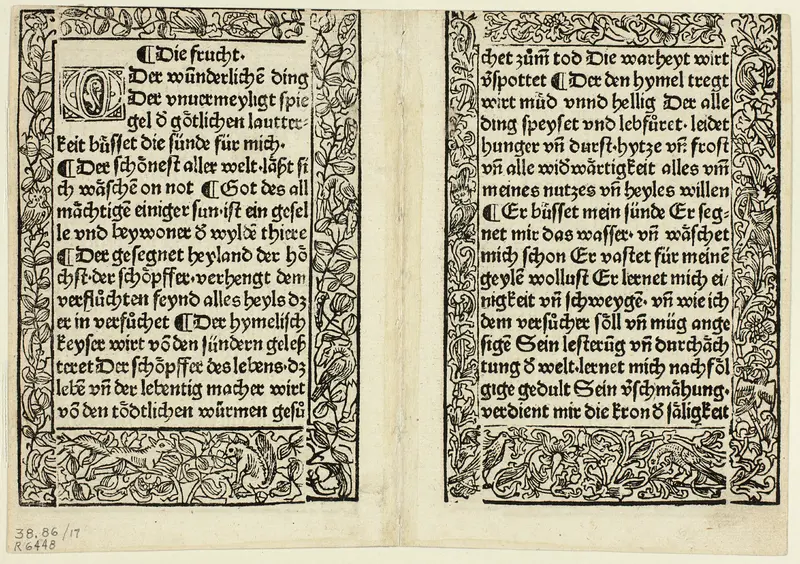 ¶Die frucht.
O Der wu̇nderlichē ding
Der vnuermeyligt spie
gel d̄ gȯtlichen lautter⸗
keit bu̇sset die su̇nde fu̇r mich.
¶Der schȯnest aller welt. la̋ßt si
ch wȧschē on not ¶Got des all
mȧchtigē einiger sun. ist ein gesel
le vnd beywoner d̄ wyldē thiere
¶Der gesegnet heyland der hȯ
chst. der schȯpffer. verhengt dem
verflu̇chten feynd alles heyls dz
er in verfu̇chet ¶Der hymelisch
keyser wirt vō den su̇ndern geleß
teret Der schȯpffer des lebens. dz
lebē vn̄ der lebentig macher wirt
vō den tȯdtlichen wu̇rmen gefu̇
chet zu̇m̄ tod Die warheyt wirt
v̄spottet ¶Der den hymel tregt
wirt mu̇d vnnd hellig Der alle
ding speyset vnd lebfu̇ret. leidet
hunger vn̄ durst. hytze vn̄ frost
vn̄ alle wid̄wȧrtigkeit alles vm̄
meines nutzes vn̄ heyles willen
¶Er bu̇sset mein su̇nde Er seg⸗
net mir das wasser. vn̄ wȧschet
mich schon Er vastet fu̇r meinē
geylē wollust Er lernet mich ei/
nigkeit vn̄ schweygē. vn̄ wie ich
dem versu̇cher sȯll vn̄ mu̇g ange
sigē Sein lesteru̇g vn̄ durchȧch
tung d̄ welt. lernet mich nachfȯl
gige gedult Sein v̄schmȧhung.
verdient mir die kron d̄ sȧligkeit
38.86/17
R6448